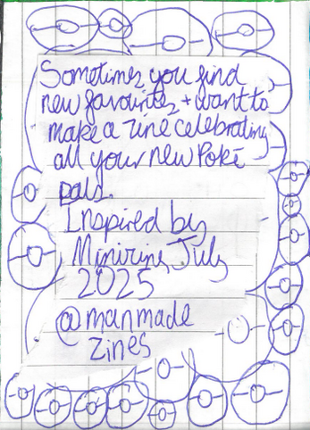 Sometimes you find
new favourites + want to
make a zine celebrating
all your new Poké
pals.
Inspired by
Minizine July
2025
@manmade
zines